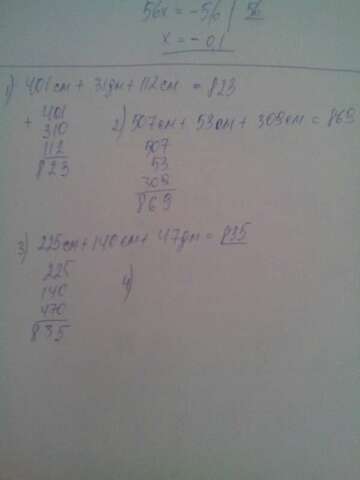 56x = -56 | 56
x = -0,1
1) 401см + 31дм + 112см = 823
+ 401
310
112
823
2) 507см + 53см + 309см = 869
507
53
309
869
3) 225см + 140см + 47дм = 835
225
140
470
835
4)